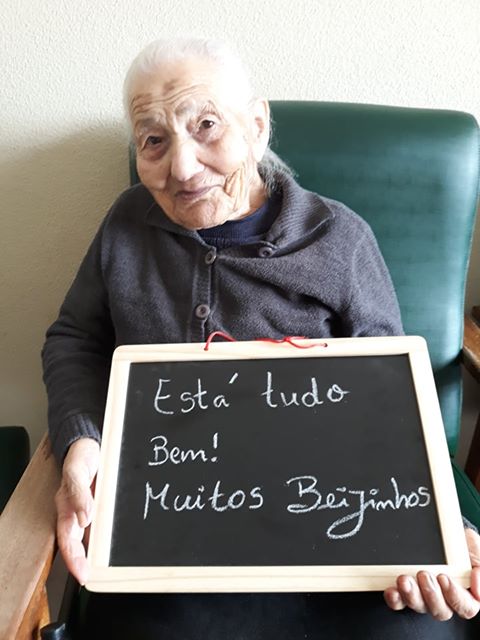 Está tudo
Bem!
Muitos Beijinhos